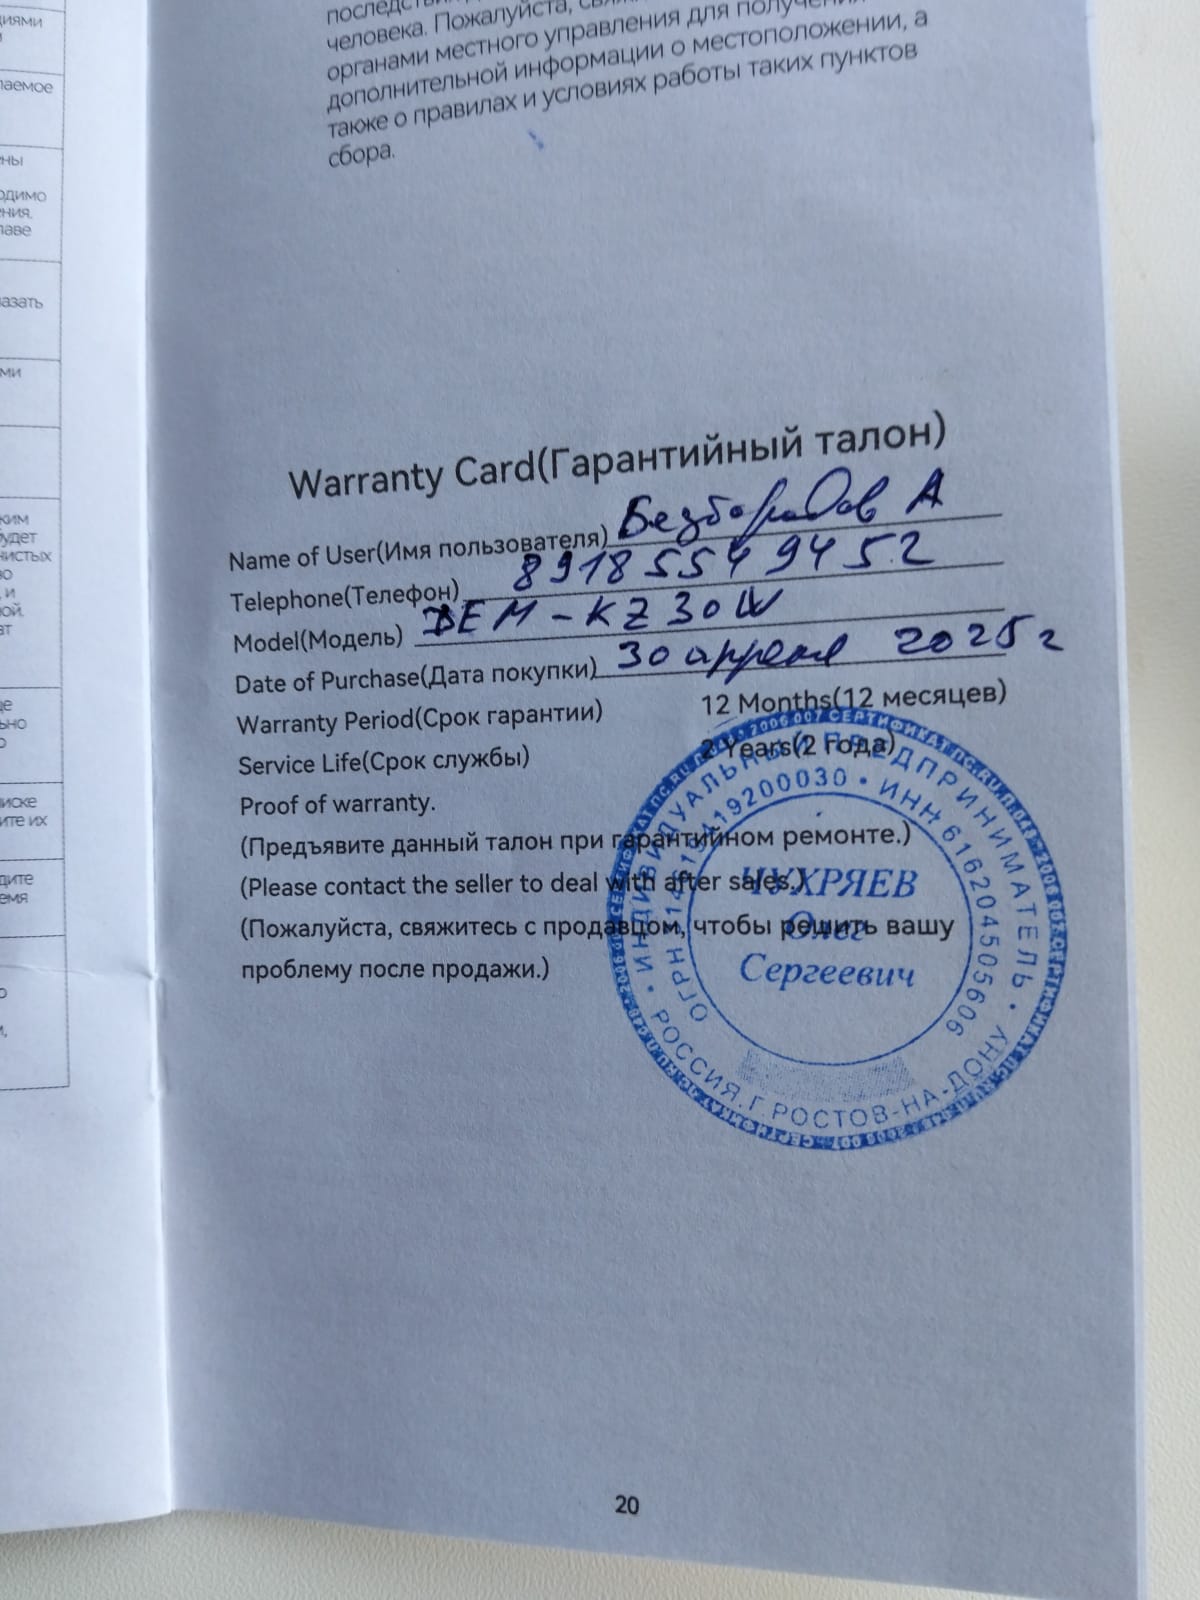 циями
лаемое
ены
одимо
ния.
лаве
азать
ми
ким
будет
чистых
во
, и
ой.
ат
це
ьно
о
иске
ите их
дите
емя
о
человека. Пожалуйста,
органами местного управления для
дополнительной информации о местоположении, а
также о правилах и условиях работы таких пунктов
сбора.
Warranty Card(Гарантийный талон)
Name of User(Имя пользователя) Безбородов А
Telephone(Телефон) 89185549452
Model(Модель) DEM-KZ30W
Date of Purchase(Дата покупки) 30 апреля 2025 г
Warranty Period(Срок гарантии) 12 Months(12 месяцев)
Service Life(Срок службы) 2 Years(2 года)
Proof of warranty.
(Предъявите данный талон при гарантийном ремонте.)
(Please contact the seller to deal with after sales.)
(Пожалуйста, свяжитесь с продавцом, чтобы решить вашу
проблему после продажи.)
ИНДИВИДУАЛЬНЫЙ ПРЕДПРИНИМАТЕЛЬ
РОССИЯ. Г. РОСТОВ-НА-ДОНУ
ИНН 616204505606
ЧУХРЯЕВ
Олег
Сергеевич
20